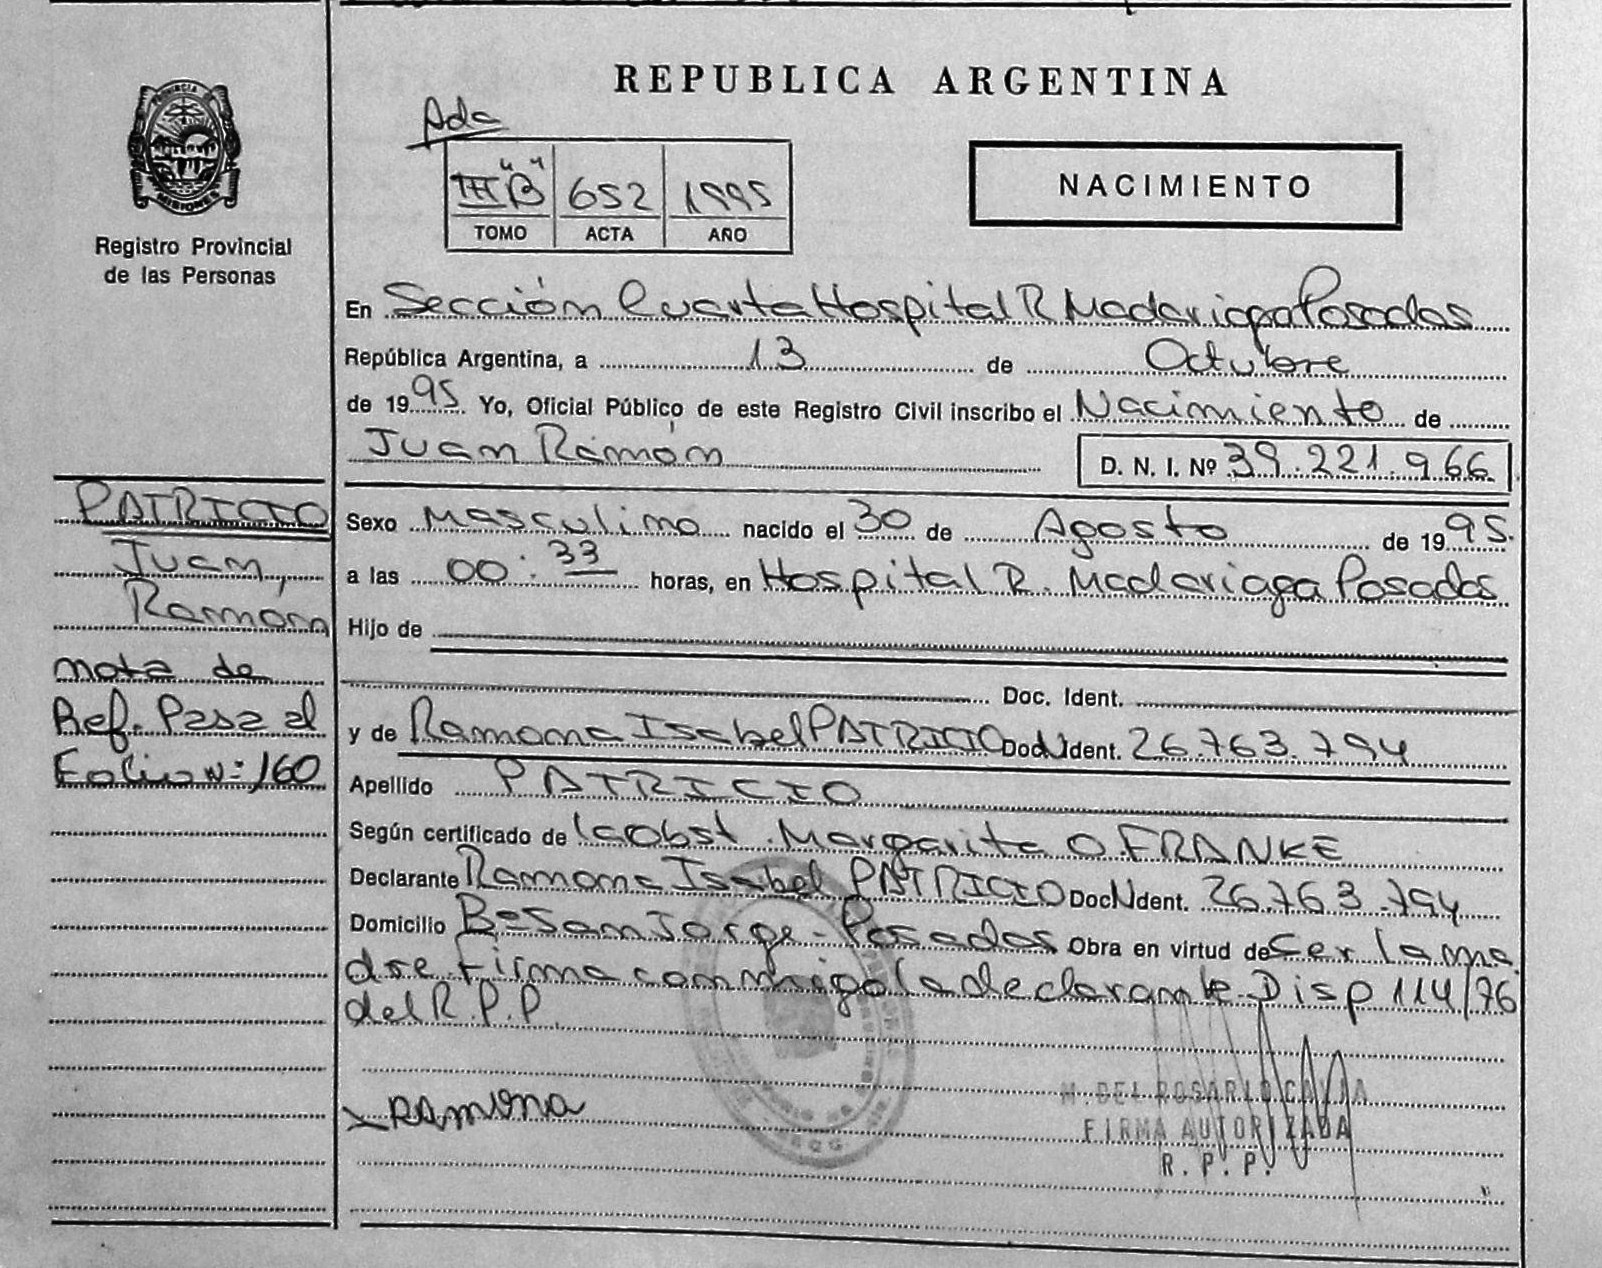 REPUBLICA ARGENTINA
Ada
III "B" 652 1995
TOMO ACTA AÑO
NACIMIENTO
PROVINCIA
MISIONES
Registro Provincial
de las Personas
En Sección Cuarta Hospital R Madariaga Posadas
República Argentina, a 13 de Octubre
de 1995. Yo, Oficial Público de este Registro Civil inscribo el Nacimiento de
Juan Ramón
D. N. I. Nº 39.221.966
PATRICIO
Juan,
Ramón
nota de
Ref. Pasa al
Folio Nº 160
Sexo Masculino nacido el 30 de Agosto de 1995.
a las 00:33 horas, en Hospital R. Madariaga Posadas
Hijo de
Doc. Ident.
y de Ramona Isabel PATRICIO Doc N Ident. 26.763.794
Apellido PATRICIO
Según certificado de la Obst. Margarita O FRANKE
Declarante Ramona Isabel PATRICIO Doc N Ident. 26.763.794
Domicilio Bº San Jorge - Posadas Obra en virtud de Ser la ma
dre Firma conmigo la declarante. Disp 114/76
del R.P.P
x RAMONA
M. DEL ROSARIO
FIRMA AUTORIZADA
R. P. P.